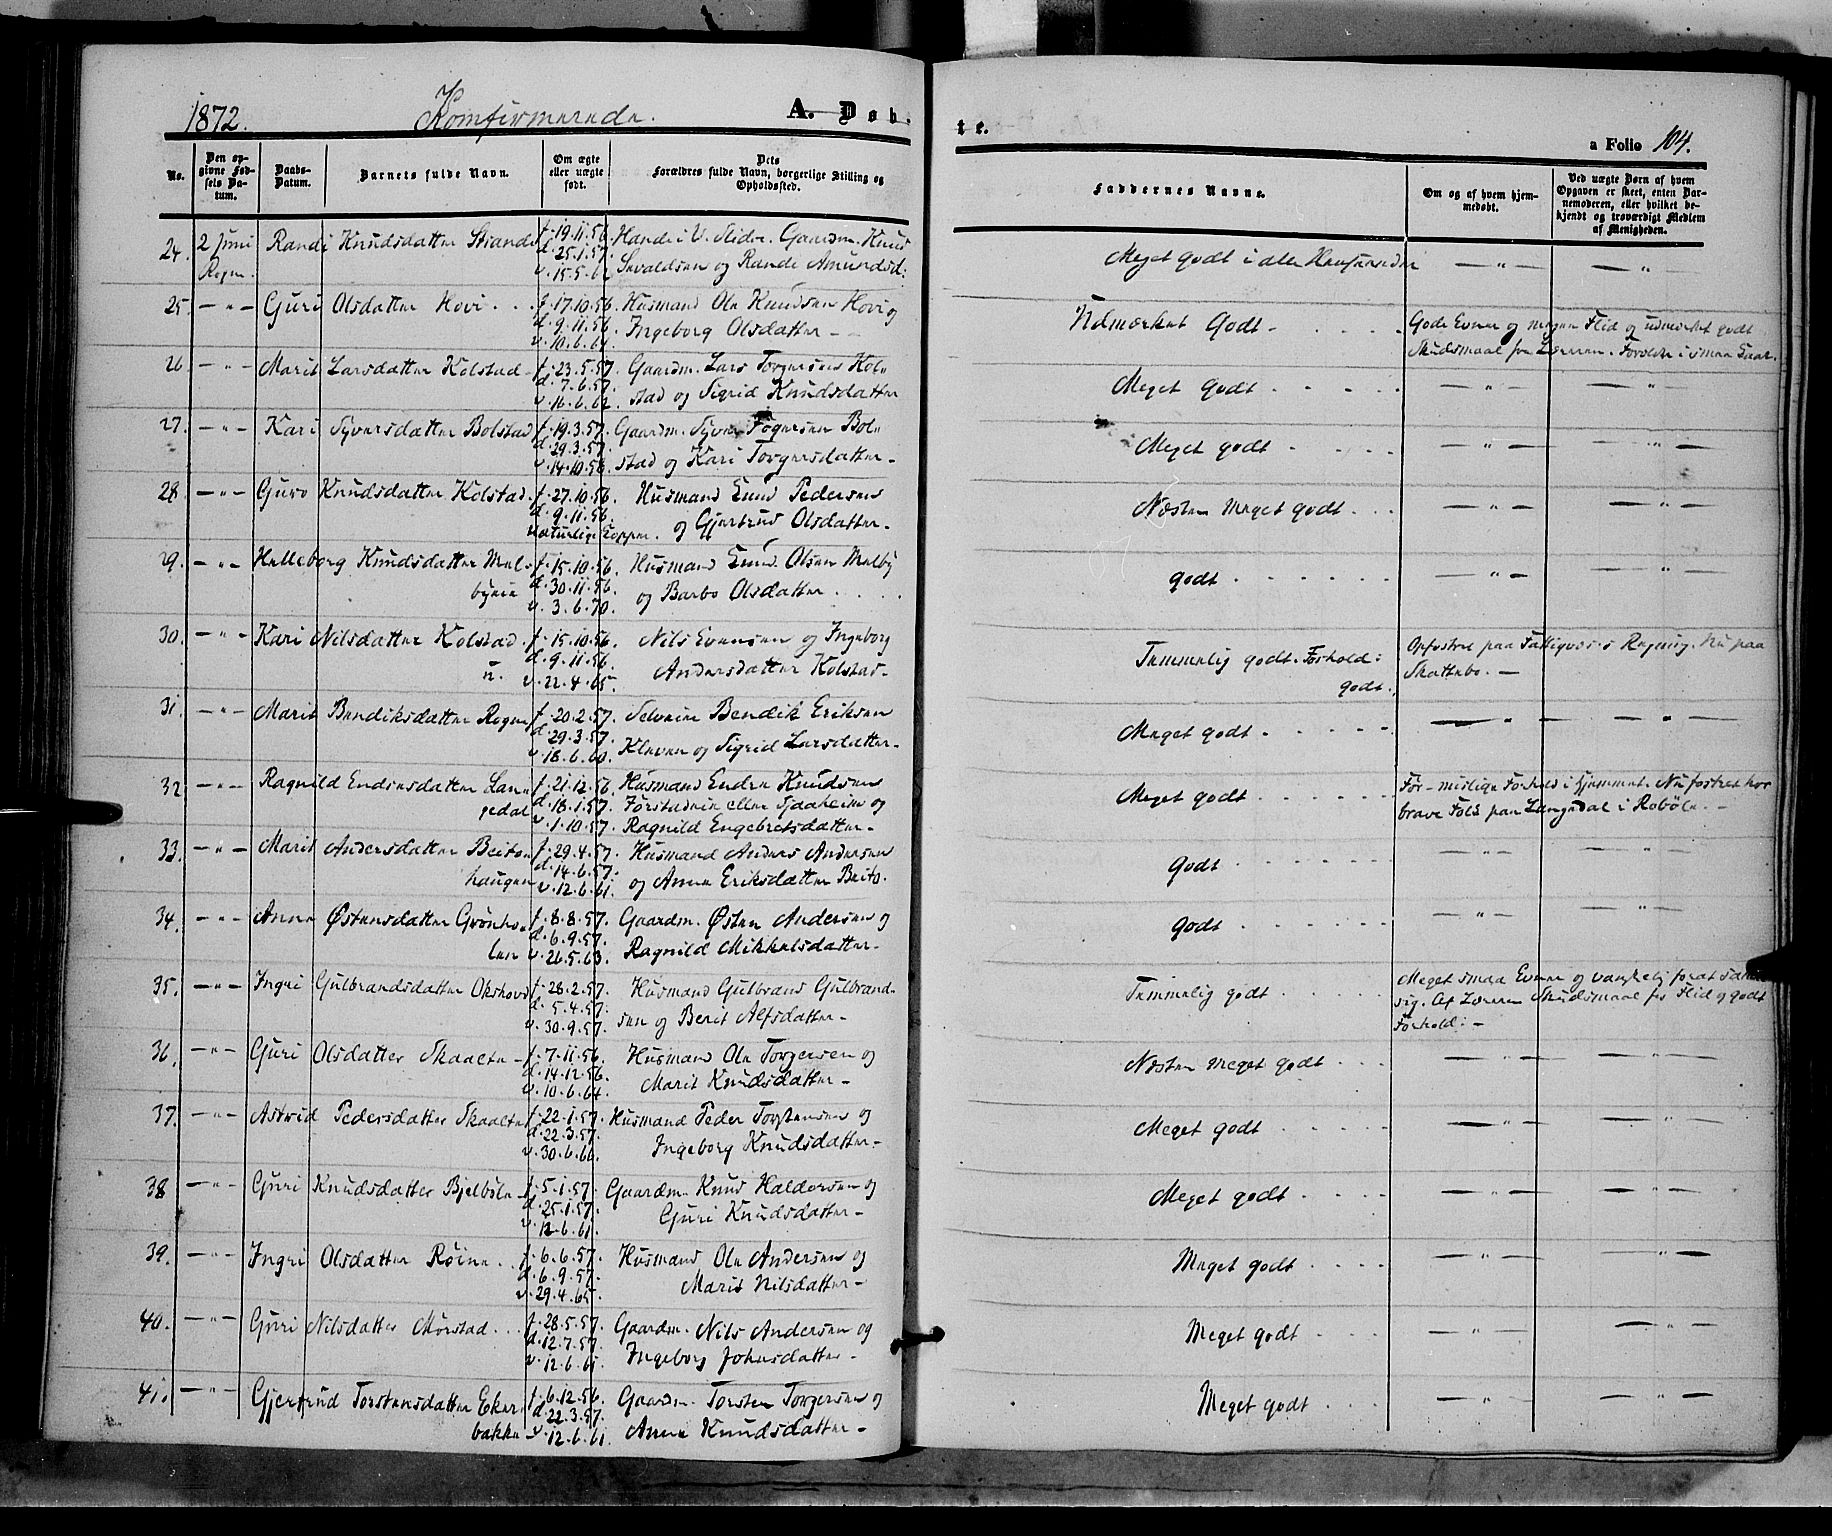 1872.
Komfirmerede.
A. Døb-
te.
a Folio 104.
No.
Den op-
givne Fød-
sels Da-
tum.
Daabs-
Datum.
Barnets fulde Navn.
Om ægte
eller uægte
født.
Dets
Forældres fulde Navn, borgerlige Stilling og
Opholdssted.
Faddernes Navne.
Om og af hvem hjem-
medøbt.
Ved uægte Børn af hvem
Opgaven er skeet, enten Bar-
nemoderen, eller hvilket be-
kjendt og troværdigt Medlem
af Menigheden.
24. 2 Juni Randi Knudsdatter Strande f. 19.11.56. Hande i V. Slidre. Gaardm. Knud Meget godt i alle Henseender — " — — " —
Rogne. d. 25.1.57. Sevaldsen og Rande Amundsd:
v. 15.5.62
25. — " — Guri Olsdatter Hovi . . f. 17.10.56. Husmand Ole Knudsen Hovi og Udmærket Godt - Gode Evner og megen Flid og udmerket godt
d. 9.11.56. Ingeborg Olsdatter — Skudsmaal fra Læreren. Forældre i smaa Kaar.
v. 10.6.64.
26 — " — Marit Larsdatter Kolstad - f. 23.5.57. Gaardm. Lars Torgersen Kol- Meget Godt — " — — " —
d. 7.6.57. stad og Sigrid Knudsdatter
v. 16.6.62.
27. — " — Kari Syversdatter Bolstad f. 19.3.57. Gaardm. Syver Bol- Meget godt — " — — " —
d. 29.3.57. stad og Kari Torgersdatter -
v. 14.10.58.
28 — " — Guro Knudsdatter Kolstad. f. 27.10.56. Husmand Knud Pedersen Næsten Meget godt — " — — " —
d. 9.11.56. og Gjertrud Olsdatter -
Naturlige Kopper.
29. — " — Helleborg Knudsdatter Mel- f. 15.10.56. Husmand Knud Olsen Melby godt — " — — " —
byeie d. 30.11.56. og Barbo Olsdatter
v. 3.6.70.
30. — " — Kari Nilsdatter Kolstad. f. 15.10.56. Nils Evensen og Ingeborg Temmelig godt. Forhold: Opfostret paa Fattigvæs's Regning. Nu paa
u. d. 9.11.56. Andersdatter Kolstad - godt. Skattebo. —
v. 22.4.65.
31. — " — Marit Bendiksdatter Rogne f. 20.2.57. Selveier Bendik Eriksen Meget godt — " — — " —
d. 29.3.57. Kleven og Sigrid Larsdatter -
v. 18.6.60.
32 — " — Ragnild Endresdatter Lan- f. 21.12.56. Husmand Endre Knudsen Meget godt For- mislige Forhold i Hjemmet. Nu fostret hos
gedal d. 18.1.57. Førstadeie eller Sjaaheim og brave Folk paa Langedal i Robøle. -
v. 1.10.57. Ragnild Engebretsdatter -
33. — " — Marit Andersdatter Beito- f. 29.4.57. Husmand Anders Andersen Godt — " — — " —
haugen d. 14.6.57. og Anne Eriksdatter Beito.
v. 12.6.61.
34. — " — Anne Østensdatter Grønho- f. 8.8.57. Gaardm. Østen Andersen og Godt — " — — " —
len d. 6.9.57. Ragnild Mikkelsdatter -
v. 26.5.63.
35. — " — Ingri Gulbrandsdatter Okshovd f. 28.2.57. Husmand Gulbrand Gulbrand- Temmelig godt Meget smaa Evner og vanskelig forat
d. 5.4.57. sen og Berit Alfsdatter - sig. Af Læreren Skudsmaal for Flid og godt
v. 30.9.57. Forhold: -
36. — " — Guri Olsdatter Skaalte - f. 7.11.56. Husmand Ole Torgersen og Næsten Meget godt — " — — " —
d. 14.12.56. Marit Knudsdatter -
v. 10.6.64.
37. — " — Astrid Pedersdatter Skaalte f. 22.1.57. Husmand Peder Torstensen og Meget godt — " — — " —
d. 22.3.57. Ingeborg Knudsdatter -
v. 30.6.60.
38 — " — Guri Knudsdatter Bjelbøle f. 5.1.57. Gaardm. Knud Haldorsen og Meget godt — " — — " —
d. 25.1.57. Guri Knudsdatter -
v. 12.6.61.
39. — " — Ingri Olsdatter Røine . . f. 6.6.57. Husmand Ole Andersen og Meget godt — " — — " —
d. 6.9.57. Marit Nilsdatter -
v. 29.4.65.
40. — " — Guri Nilsdatter Mørstad . . f. 28.5.57. Gaardm. Nils Andersen og Meget godt — " — — " —
d. 12.7.57. Ingeborg Johnsdatter -
v. 12.6.61.
41. — " — Gjertrud Torstensdatter Eker- f. 6.12.56. Gaardm. Torsten Torgersen og Meget godt — " — — " —
bakke - d. 22.3.57. Anne Knudsdatter -
v. 12.6.61.